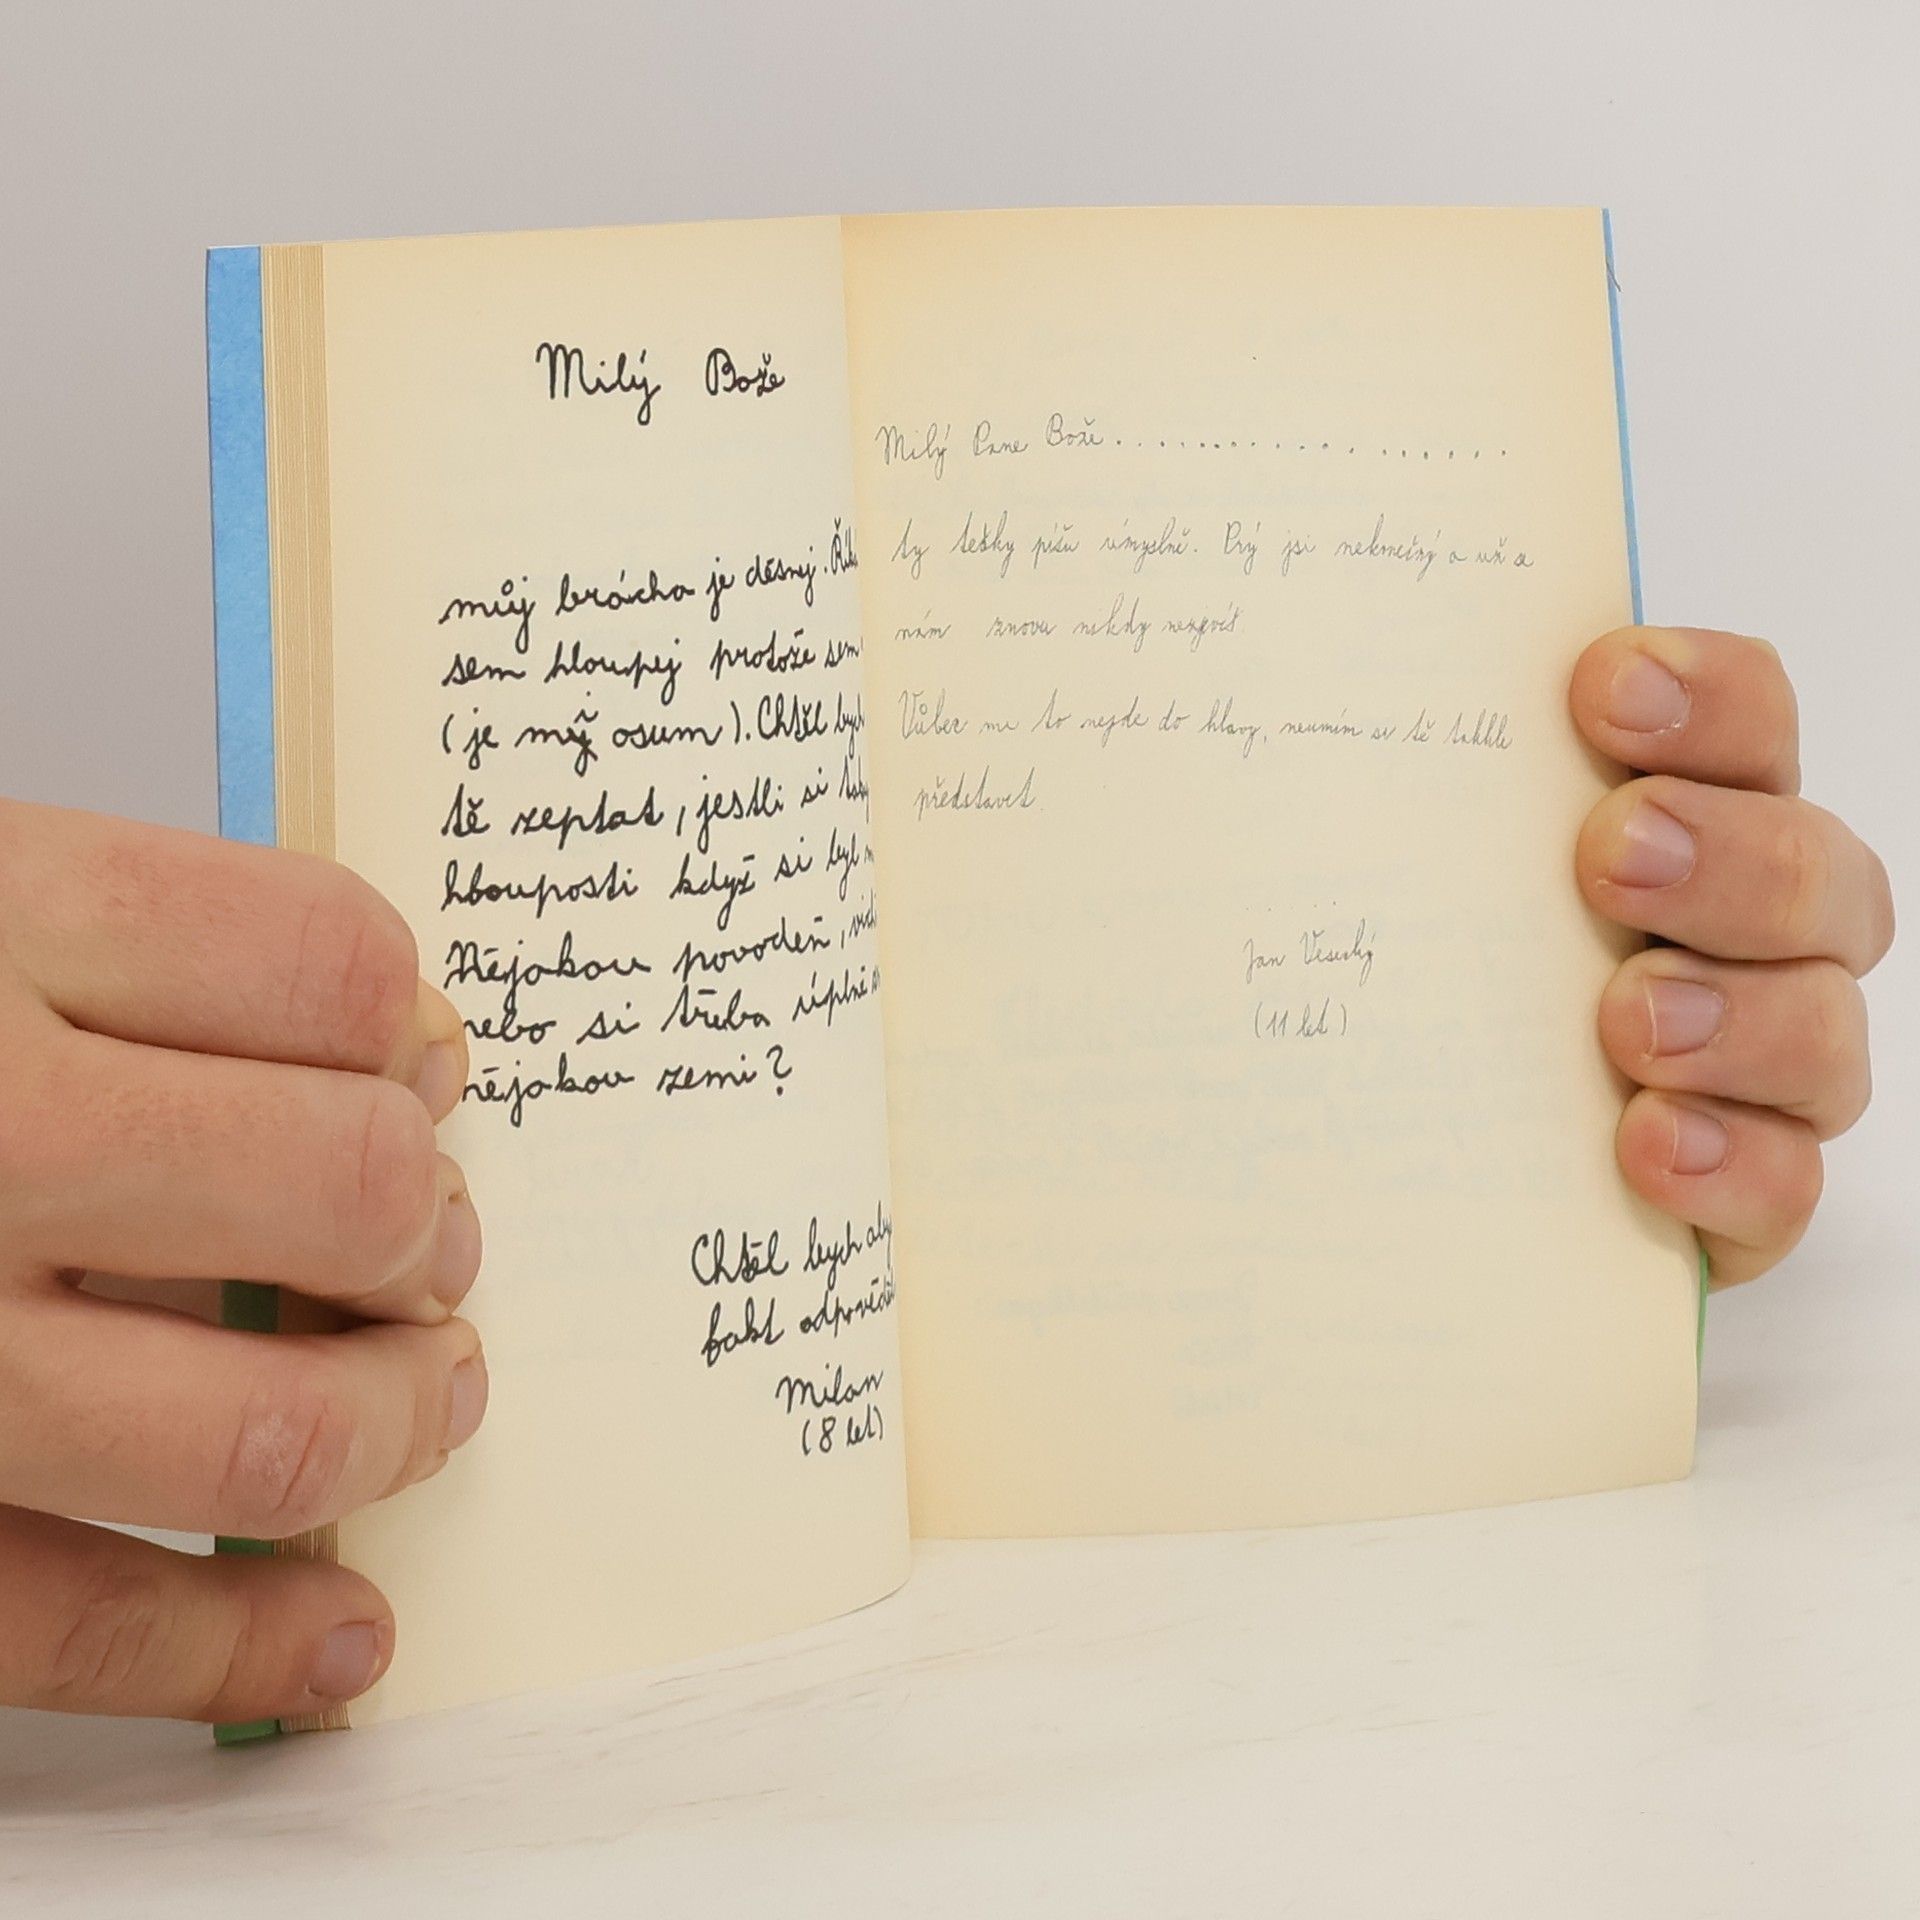 Milý Bože
můj brácha je děsnej. Říká
sem hloupej protože sem
(je mi osum). Chtěl bych
tě zeptat, jestli si
hlouposti když si byl
Nějakou povodeň,
nebo si třeba úplně
nějakou zemi?
Chtěl bych aby
fakt
Milan
(8 let)
Milý Pane Bože..........................
ty tečky píšu úmyslně. Prý jsi nekonečný a už se
nám znovu nikdy nezjevíš.
Vůbec mi to nejde do hlavy, neumím si tě takhle
představit.
Jan
(11 let)